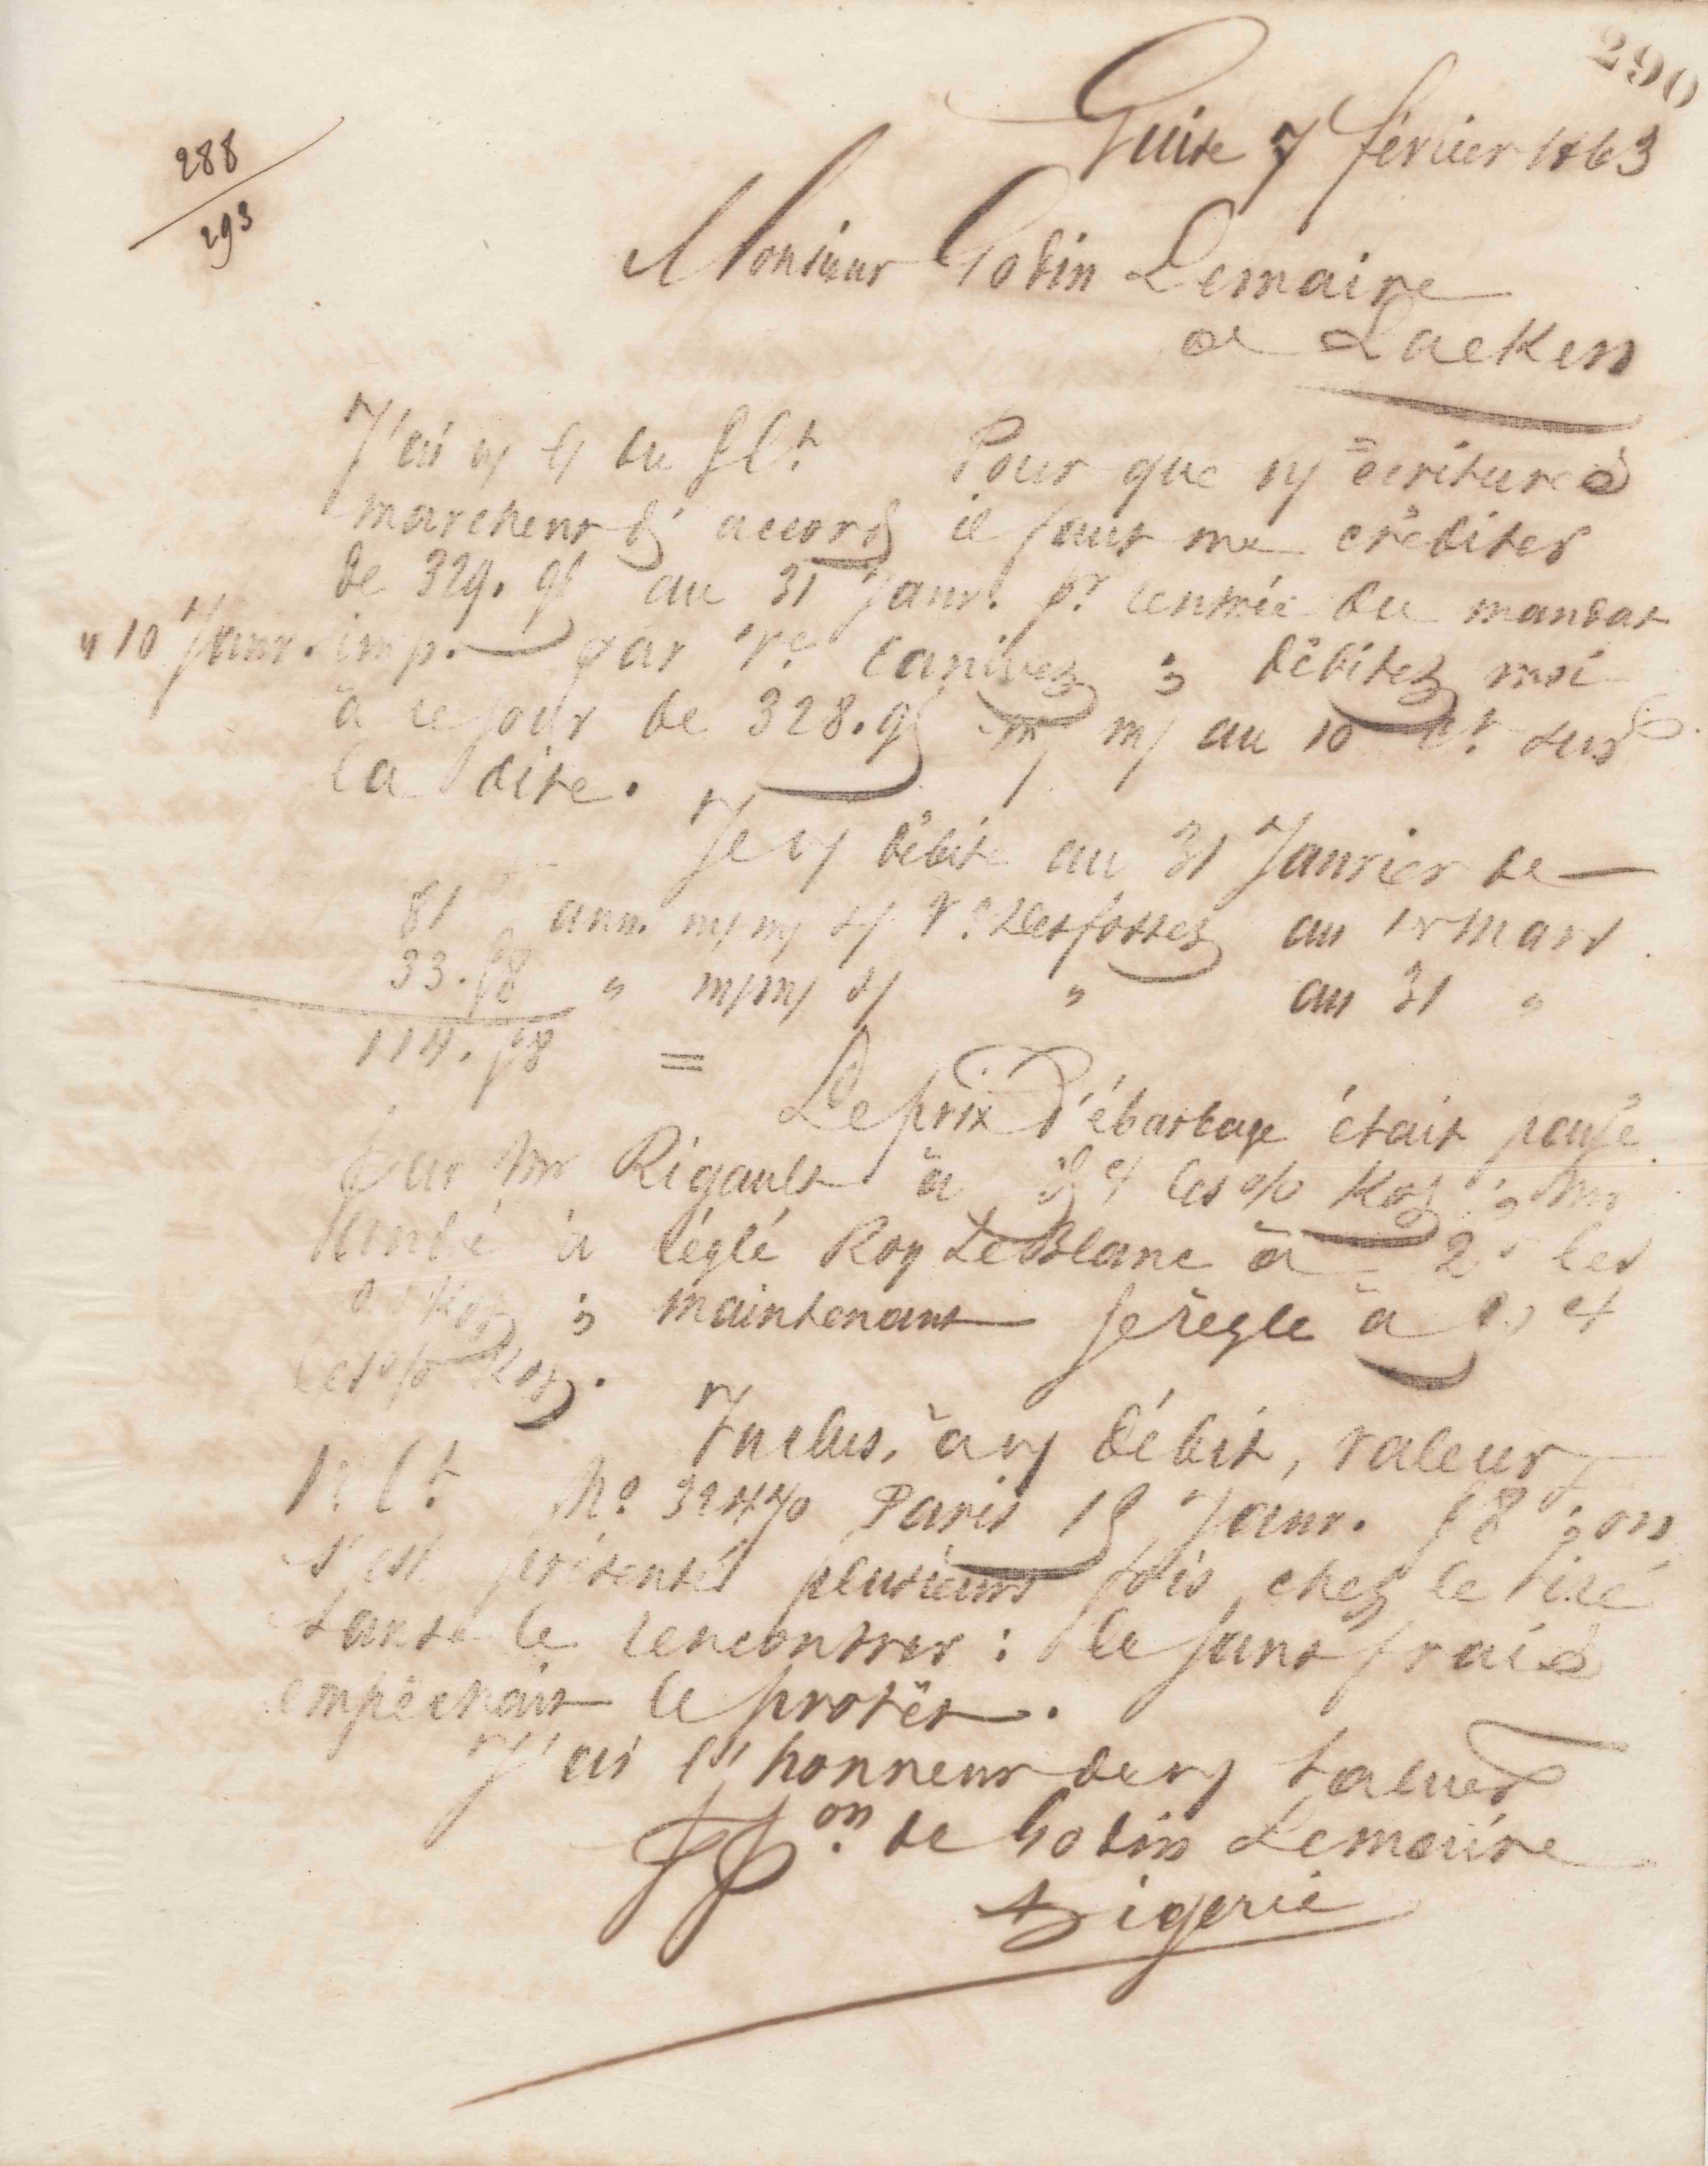 290
288
293
Guise 7 février 1863
Monsieur Godin Lemaire
à Laeken
J'ai v/ l/ du 5 Ct. Pour que n/ écritures
marchent d'accord il faut me créditer
de 329.95 au 31 Janv. pr. rentrée du mandat
"10 Janv. imp. par Ve Canivez ; débitez moi
à ce jour de 328.95 m/ m/ au 10 Ct. sur
la dite.
Je v/ débite au 31 Janvier de
81 ann. m/ m/ s/ Ve. Desfossez au 1er Mars
33.58 " m/ m/ s/ " au 31 "
114.58 =
Le prix d'ébarbage était payé
par Mr Rigault à les % Kos ; Mr
André à réglé Roy Leblanc à 2 les
% Kos ; maintenant je règle à
les % Kos.
Inclus, à v/ débit, valeur
Ct. No. 32470 Paris 15 Janv. 58 ; on
s'est présenté plusieurs fois chez le tiré
sans le rencontrer : le sans frais
empêchait le protêt.
J'ai l'honneur de v/ saluer
P Pon. de Godin Lemaire
Sigerie